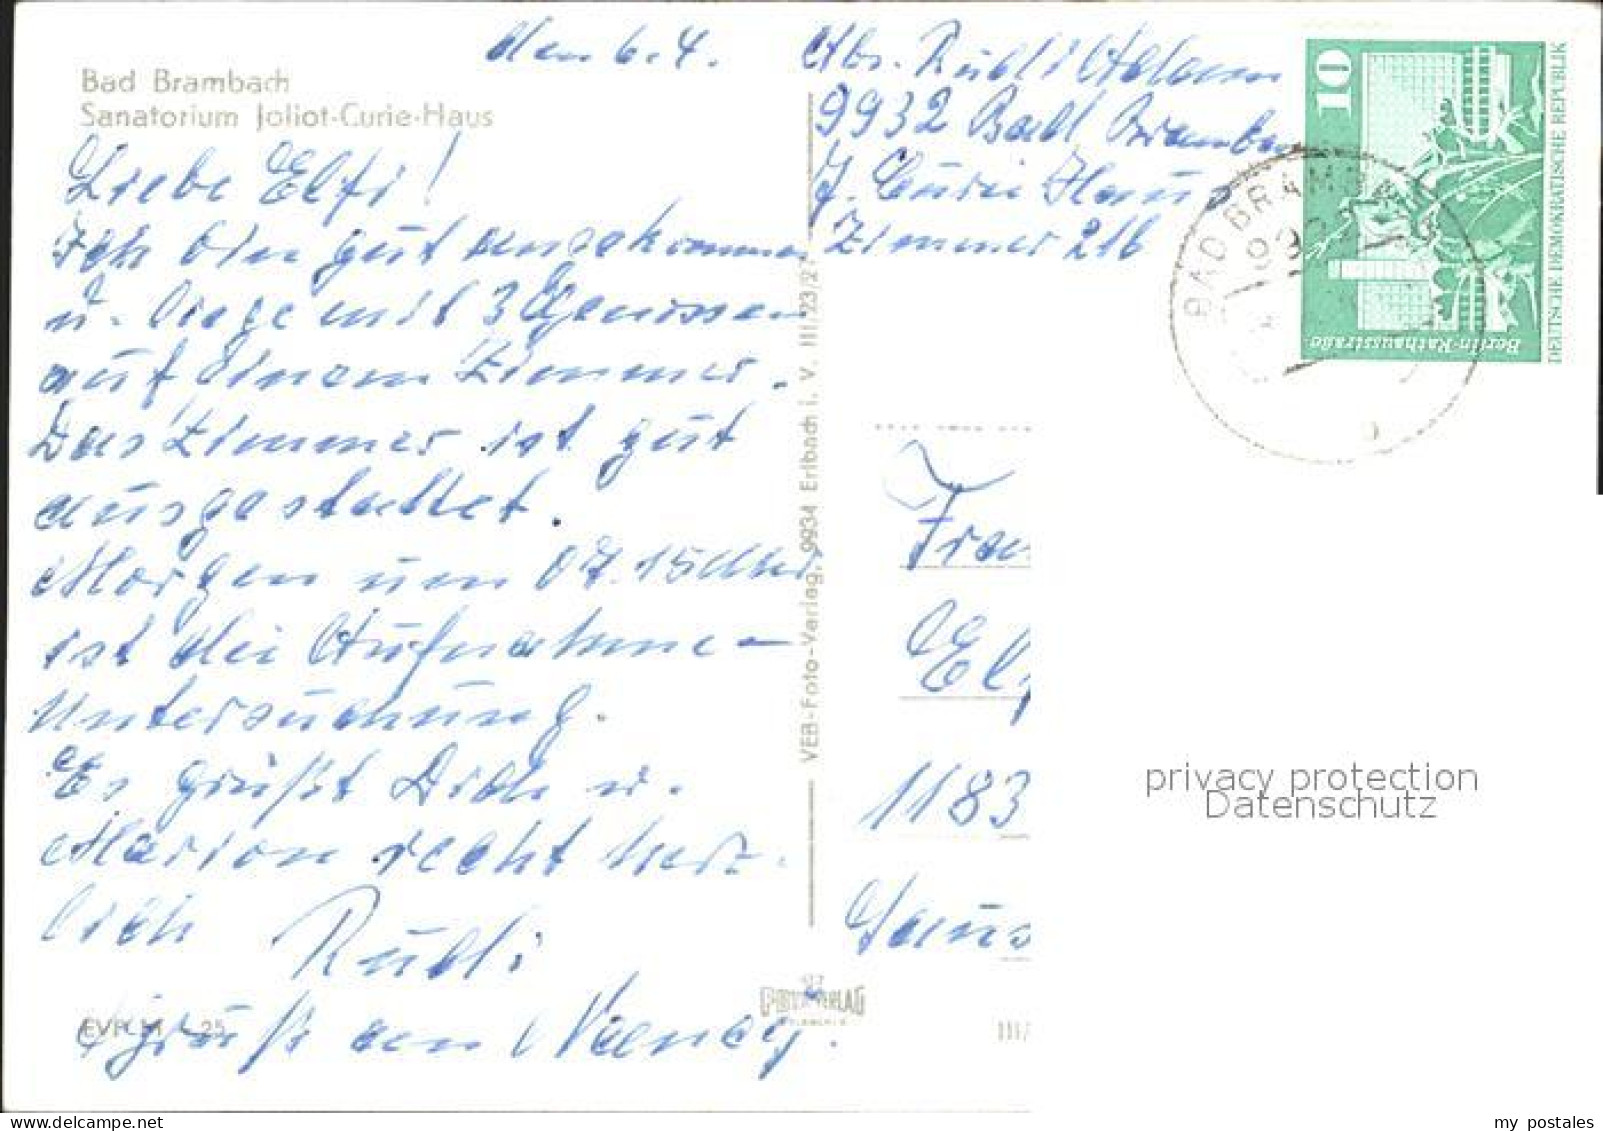 den 6.4.
Bad Brambach
Sanatorium Joliot-Curie-Haus
Liebe Elfi!
Ich bin gut angekommen
u. liege mit 3 Genossen
auf einem Zimmer.
Das Zimmer ist gut
ausgestattet.
Morgen um 07.15 Uhr
ist die Aufnahme-
untersuchung.
Es grüßt Dich u.
Marion recht herz-
lich Rudi
Gruß an Nancy.
EVP M -,25
VEB-Foto-Verlag, 9934 Erlbach i. V. III/23/2
VERLAG
Abs. Rudi Adam
9932 Bad Bramba
J. Curie Haus
Zimmer 216
10
DEUTSCHE DEMOKRATISCHE REPUBLIK
Berlin-Rathausstrasse
BAD BRAMB
Frau
Elf
1183
III/
privacy protection
Datenschutz
my postales